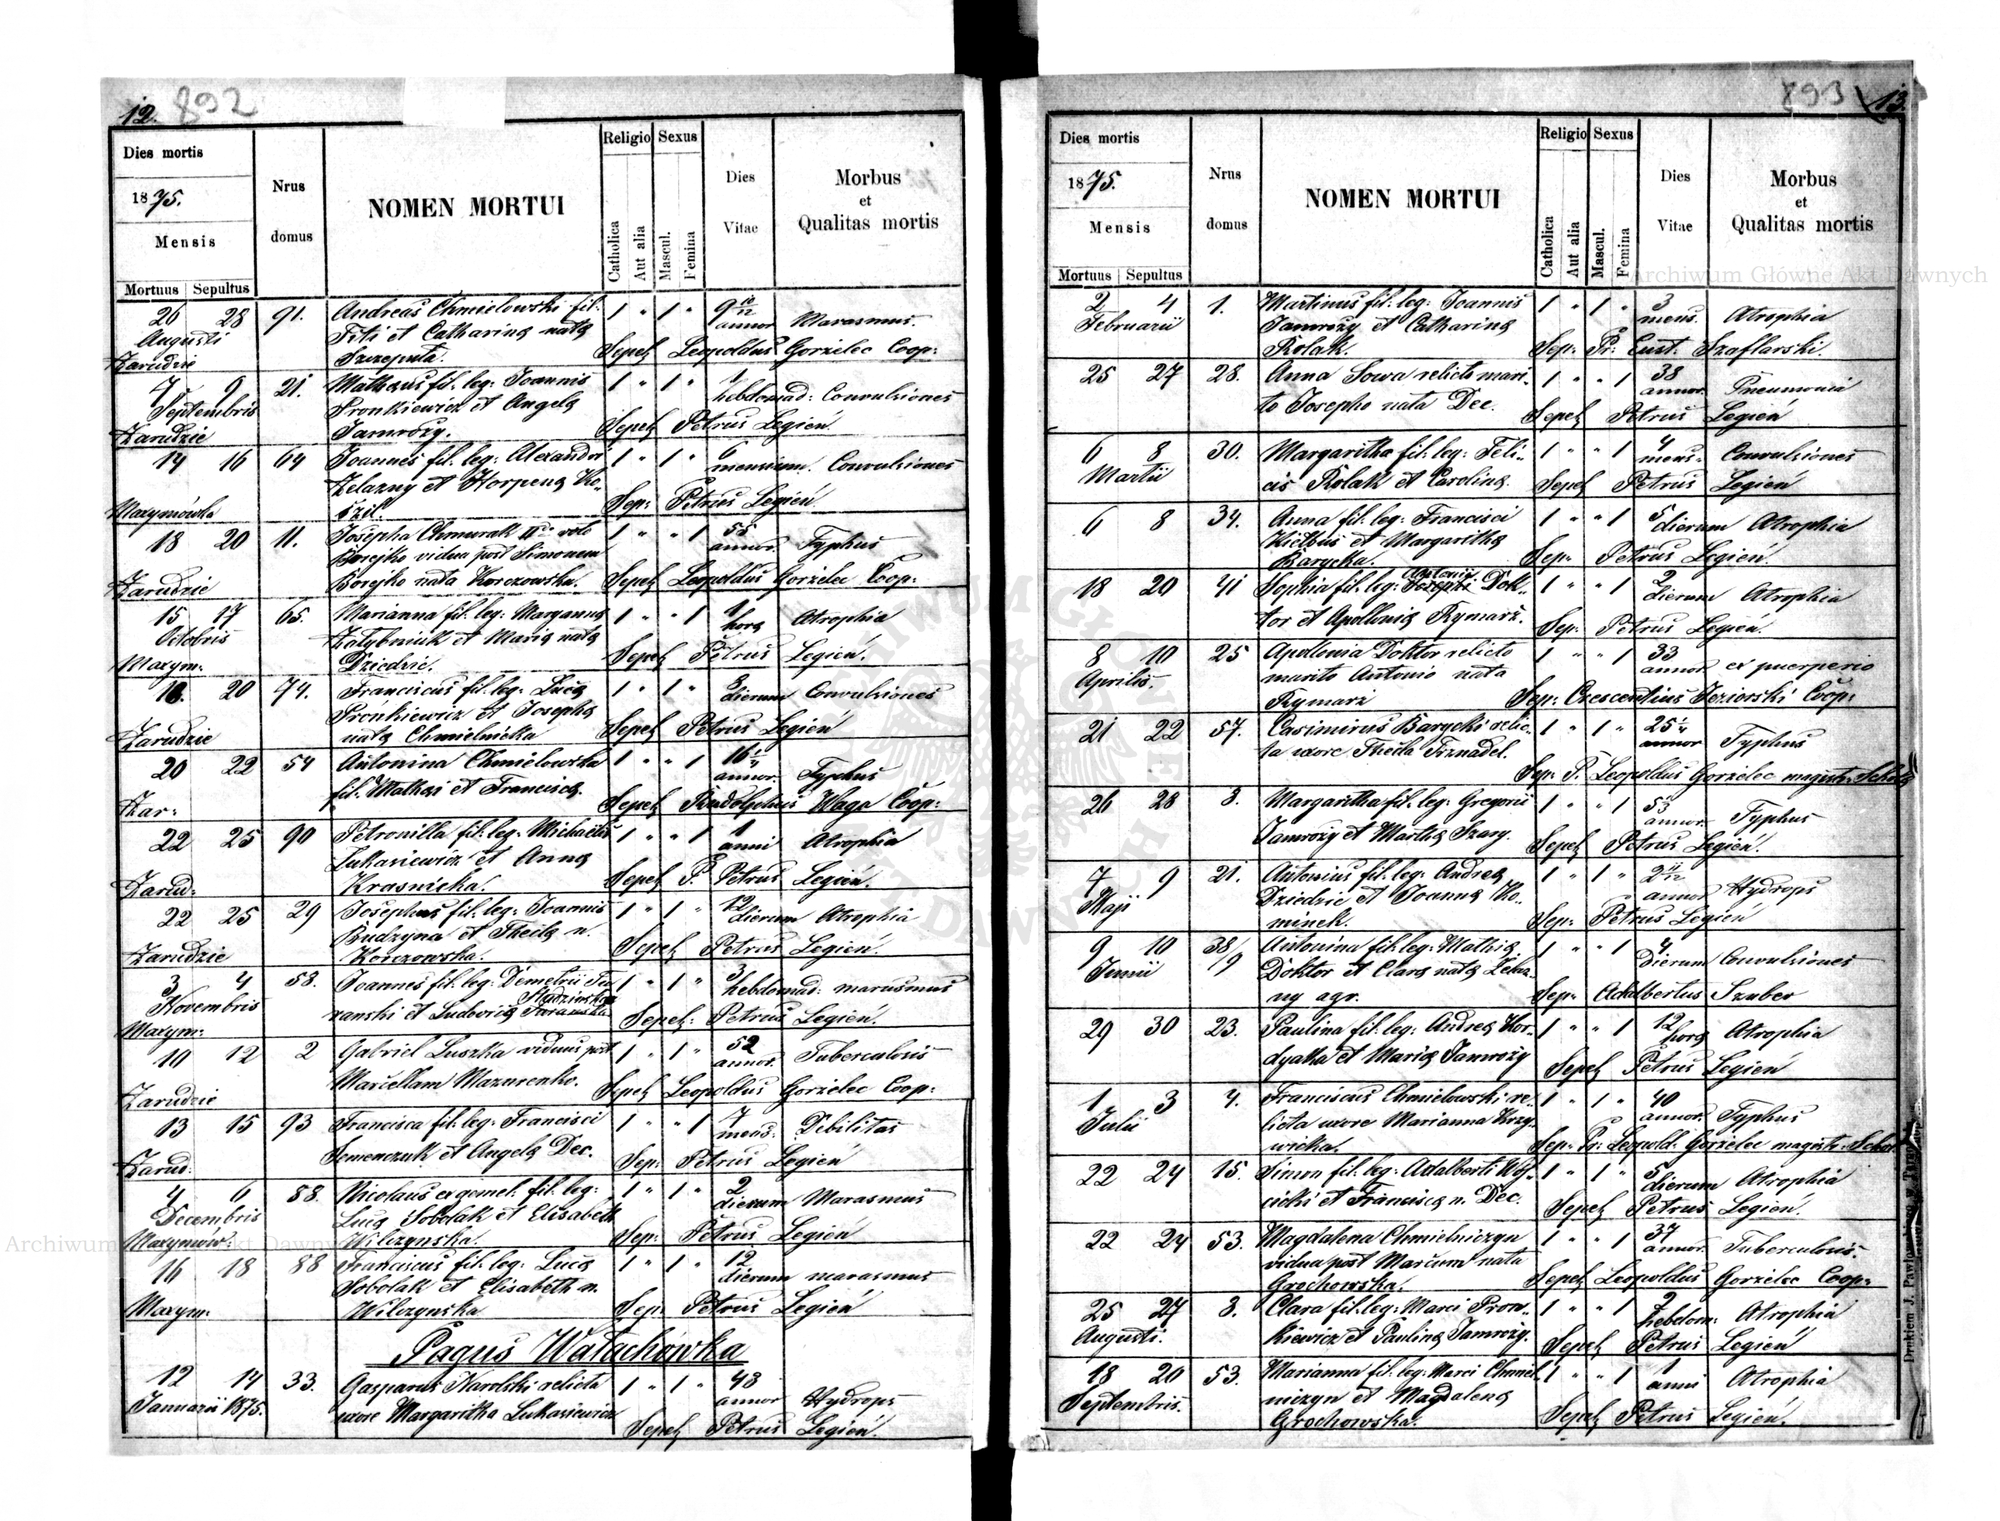 12. 892
Dies mortis
1875.
Mensis
Mortuus Sepultus
Nrus domus
NOMEN MORTUI
Religio Sexus
Catholica
Aut alia
Mascul.
Femina
Dies Vitae
Morbus
et
Qualitas mortis
26 28 91. Andreas Chmielowski fil. 1 " 1 " 9 10/12
Augusti Titi et Catharina nata annor Marasmus.
Zarudzie Szczepula. Sepel Leopoldus Gorzelec Coop:
7 9 21. Mathaus fil. leg: Joannis 1 " 1 " 1
Septembris Pronkiewicz et Angela hebdomad: Convulsiones
Zarudzie Jamroży. Sepel Petrus Legień.
14 16 64 Joannes fil. leg: Alexandri 1 " 1 " 6
Żelazny et Horpena Ko- mensium. Convulsiones
Maxymówka Sep: Petrus Legień
18 20 11. Josepha Chmurak IIdo voto 1 " " 1 55
Borejko vidua post Simonem annor. Typhus
Zarudzie Boryko nata Korczowska. Sepel Leopoldus Gorzelec Coop:
15 17 65. Marianna fil. leg: 1 " " 1 1
Octobris et Maria nata hora Atrophia
Maxym: Dziedzic. Sepel Petrus Legień.
20 74. Franciscus fil. leg: Luca 1 " 1 " 3
Prónkiewicz et Josepha dierum Convulsiones
Zarudzie nata Chmielnicka Sepel Petrus Legień
20 22 54 Antonina Chmielowska 1 " " 1 16
fil. Mathei et Francisca. annor. Typhus
Zar: Sepel Rudolphus Waga Coop:
22 25 90 Petronilla fil. leg: Michaelis 1 " " 1 1
Lukasiewicz et Anna anni Atrophia
Zarud: Krasnicka. Sepel P. Petrus Legień.
22 25 29 Josephus fil. leg: Joannis 1 " 1 " 12
Budzyna et Thecla n. dierum Atrophia
Zarudzie Korczowska. Sepel Petrus Legień.
3 4 58. Joannes fil. leg: Demetrii 1 " 1 " 3
Novembris et Ludovica hebdomad: marasmus
Maxym: Sepel: Petrus Legień.
10 12 2 Gabriel Luszka viduus post 1 " 1 " 52
Marcellam Mazurenko. annor. Tuberculosis
Zarudzie Sepel Leopoldus Gorzelec Coop:
13 15 93 Francisca fil. leg: Francisci 1 " " 1 7
Semenczuk et Angela Dec. mens: Debilitas
Zarud: Sep: Petrus Legień
4 6 88. Nicolaus ex gemel. fil. leg: 1 " 1 " 2
Decembris Luca Sobolak et Elisabeth dierum Marasmus
Maxymów: Wilczynska. Sep: Petrus Legień
16 18 88 Franciscus fil. leg: Luca 1 " 1 " 12
Sobolak et Elisabeth n. dierum marasmus
Maxym: Wilczynska Sep: Petrus Legień
Pagus Wałachówka
12 14 33. Gasparus Narolski relicta 1 " 1 " 43
Januarii 1875. uxore Margaritha Lukasiewicz annor Hydrops
Sepel Petrus Legień.
893 13.
Dies mortis
1875.
Mensis
Mortuus Sepultus
Nrus domus
NOMEN MORTUI
Religio Sexus
Catholica
Aut alia
Mascul.
Femina
Dies Vitae
Morbus
et
Qualitas mortis
2 4 1. Martinus fil. leg: Joannis 1 " 1 " 3
Februarii Jamroży et Catharina mens. Atrophia
Kolak. Sep: Pr: Eust. Szaflarski.
25 27 28. Anna Sowa relicto mari- 1 " " 1 38
to Josepho nata Dec. annor. Pneumonia
Sepel Petrus Legień
6 8 30. Margaritha fil. leg: Feli- 1 " " 1 4
Martii cis Kolak et Carolina. mens: Convulsiones
Sepel Petrus Legień
6 8 34. Anna fil. leg: Francisci 1 " " 1 5
Kiełbus et Margaritha dierum Atrophia
Barycka. Sep: Petrus Legień.
18 20 41 Sophia fil. leg: Antonii Dok- 1 " " 1 2
tor et Apollonia Rymarz. dierum Atrophia
Sep: Petrus Legień.
8 10 25 Apollonia Doktor relicto 1 " " 1 33
Aprilis. marito Antonio nata annor ex puerperio
Rymarz Sep: Crescentius Jeziorski Coop:
21 22 57. Casimirus Barycki relic- 1 " 1 " 25
ta uxore Thecla Trznadel. annor Typhus
Sep: P. Leopoldus Gorzelec magistr: Schol
26 28 3. Margaritha fil. leg: Gregorii 1 " " 1 5
Jamroży et Martha Szary. annor. Typhus
Sepel Petrus Legień.
7 9 21. Antonius fil. leg: Andrea 1 " 1 " 2 11/12
Maji Dziedzic et Joanna Ko- annor Hydrops
minek. Sep: Petrus Legień
9 10 38/9 Antonina fil. leg: Mathia 1 " " 1 4
Junii Doktor et Clara nata Żelaz- dierum Convulsiones
ny agr. Sep: Adalbertus Szuber
29 30 23. Paulina fil. leg: Andrea Kor- 1 " " 1 12
dyaka et Maria Jamroży hora Atrophia
Sepel Petrus Legień
1 3 4. Franciscus Chmielowski re- 1 " 1 " 40
Julii licta uxore Marianna Krzy- annor. Typhus
wicka. Sep: Pr: Leopold. Gorzelec magistr: Schol
22 24 15. Simon fil. leg: Adalberti Woj- 1 " 1 " 5
cicki et Francisca n. Dec. dierum Atrophia
Sepel Petrus Legień.
22 24 53. Magdalena Chmielniczyn 1 " " 1 37
vidua post Marcum nata annor. Tuberculosis.
Grochowska. Sepel Leopoldus Gorzelec Coop:
25 27 3. Clara fil. leg: Marci Pron- 1 " " 1 2
Augusti. kiewicz et Paulina Jamroży. hebdom: Atrophia
Sepel Petrus Legień
18 20 53. Marianna fil. leg: Marci Chmiel- 1 " " 1 1
Septembris. niczyn et Magdalena anni Atrophia
Grochowska. Sepel Petrus Legień.
Archiwum Główne Akt Dawnych